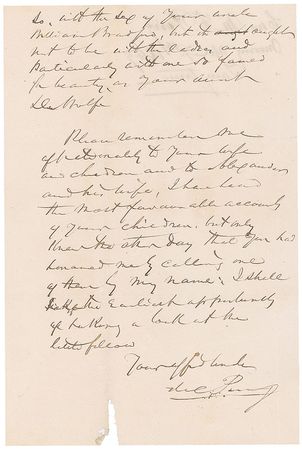 so, with the sex of your uncle
William Bradford, but it ought
not to be with the ladies, and
particularly with one so famed
for beauty, as your aunt
De Wolfe
Please remember me
affectionately to your wife
and children and to Alexander
and his wife, I have heard
the most favourable accounts
of your children, but only
knew the other day that you had
honoured me by calling one
of them by my name; I shall
take the earliest opportunity
of taking a look at the
little fellow
Your affd uncle
M C Perry